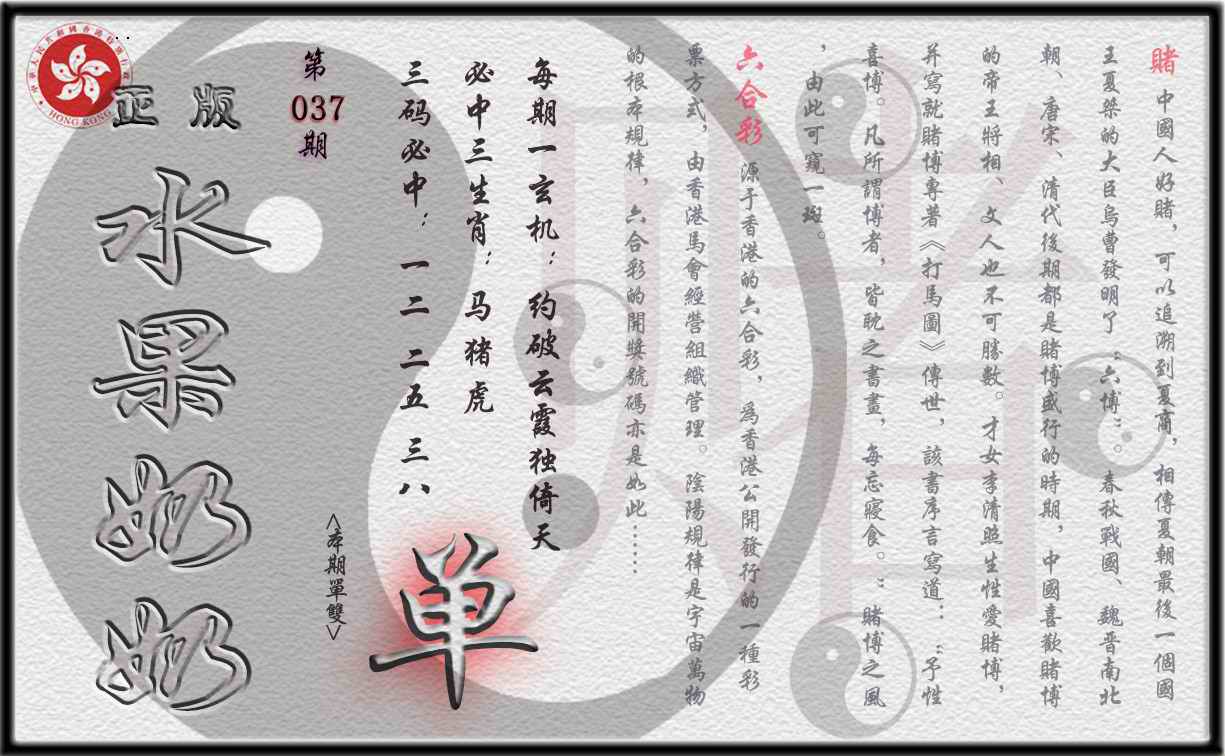 賭 中國人好賭，可以追溯到夏商，相傳夏朝最後一個國
王夏桀的大臣烏曹發明了“六博”。春秋戰國、魏晋南北
朝、唐宋、清代後期都是賭博盛行的時期，中國喜歡賭博
的帝王將相、文人也不可勝數。才女李清照生性愛賭博，
并寫就賭博專著《打馬圖》傳世，該書序言寫道：“予性
喜博。凡所謂博者，皆耽之書畫，每忘寢食。”賭博之風
，由此可窺一斑。
六合彩 源于香港的六合彩，爲香港公開發行的一種彩
票方式，由香港馬會經營組織管理。陰陽規律是宇宙萬物
的根本規律，六合彩的開獎號碼亦是如此……
每期一玄机：约破云霞独倚天
必中三生肖：马猪虎
三码必中：一二 二五 三八
单
第
037
期
<本期單雙>
正版
水果奶奶
HONG KONG